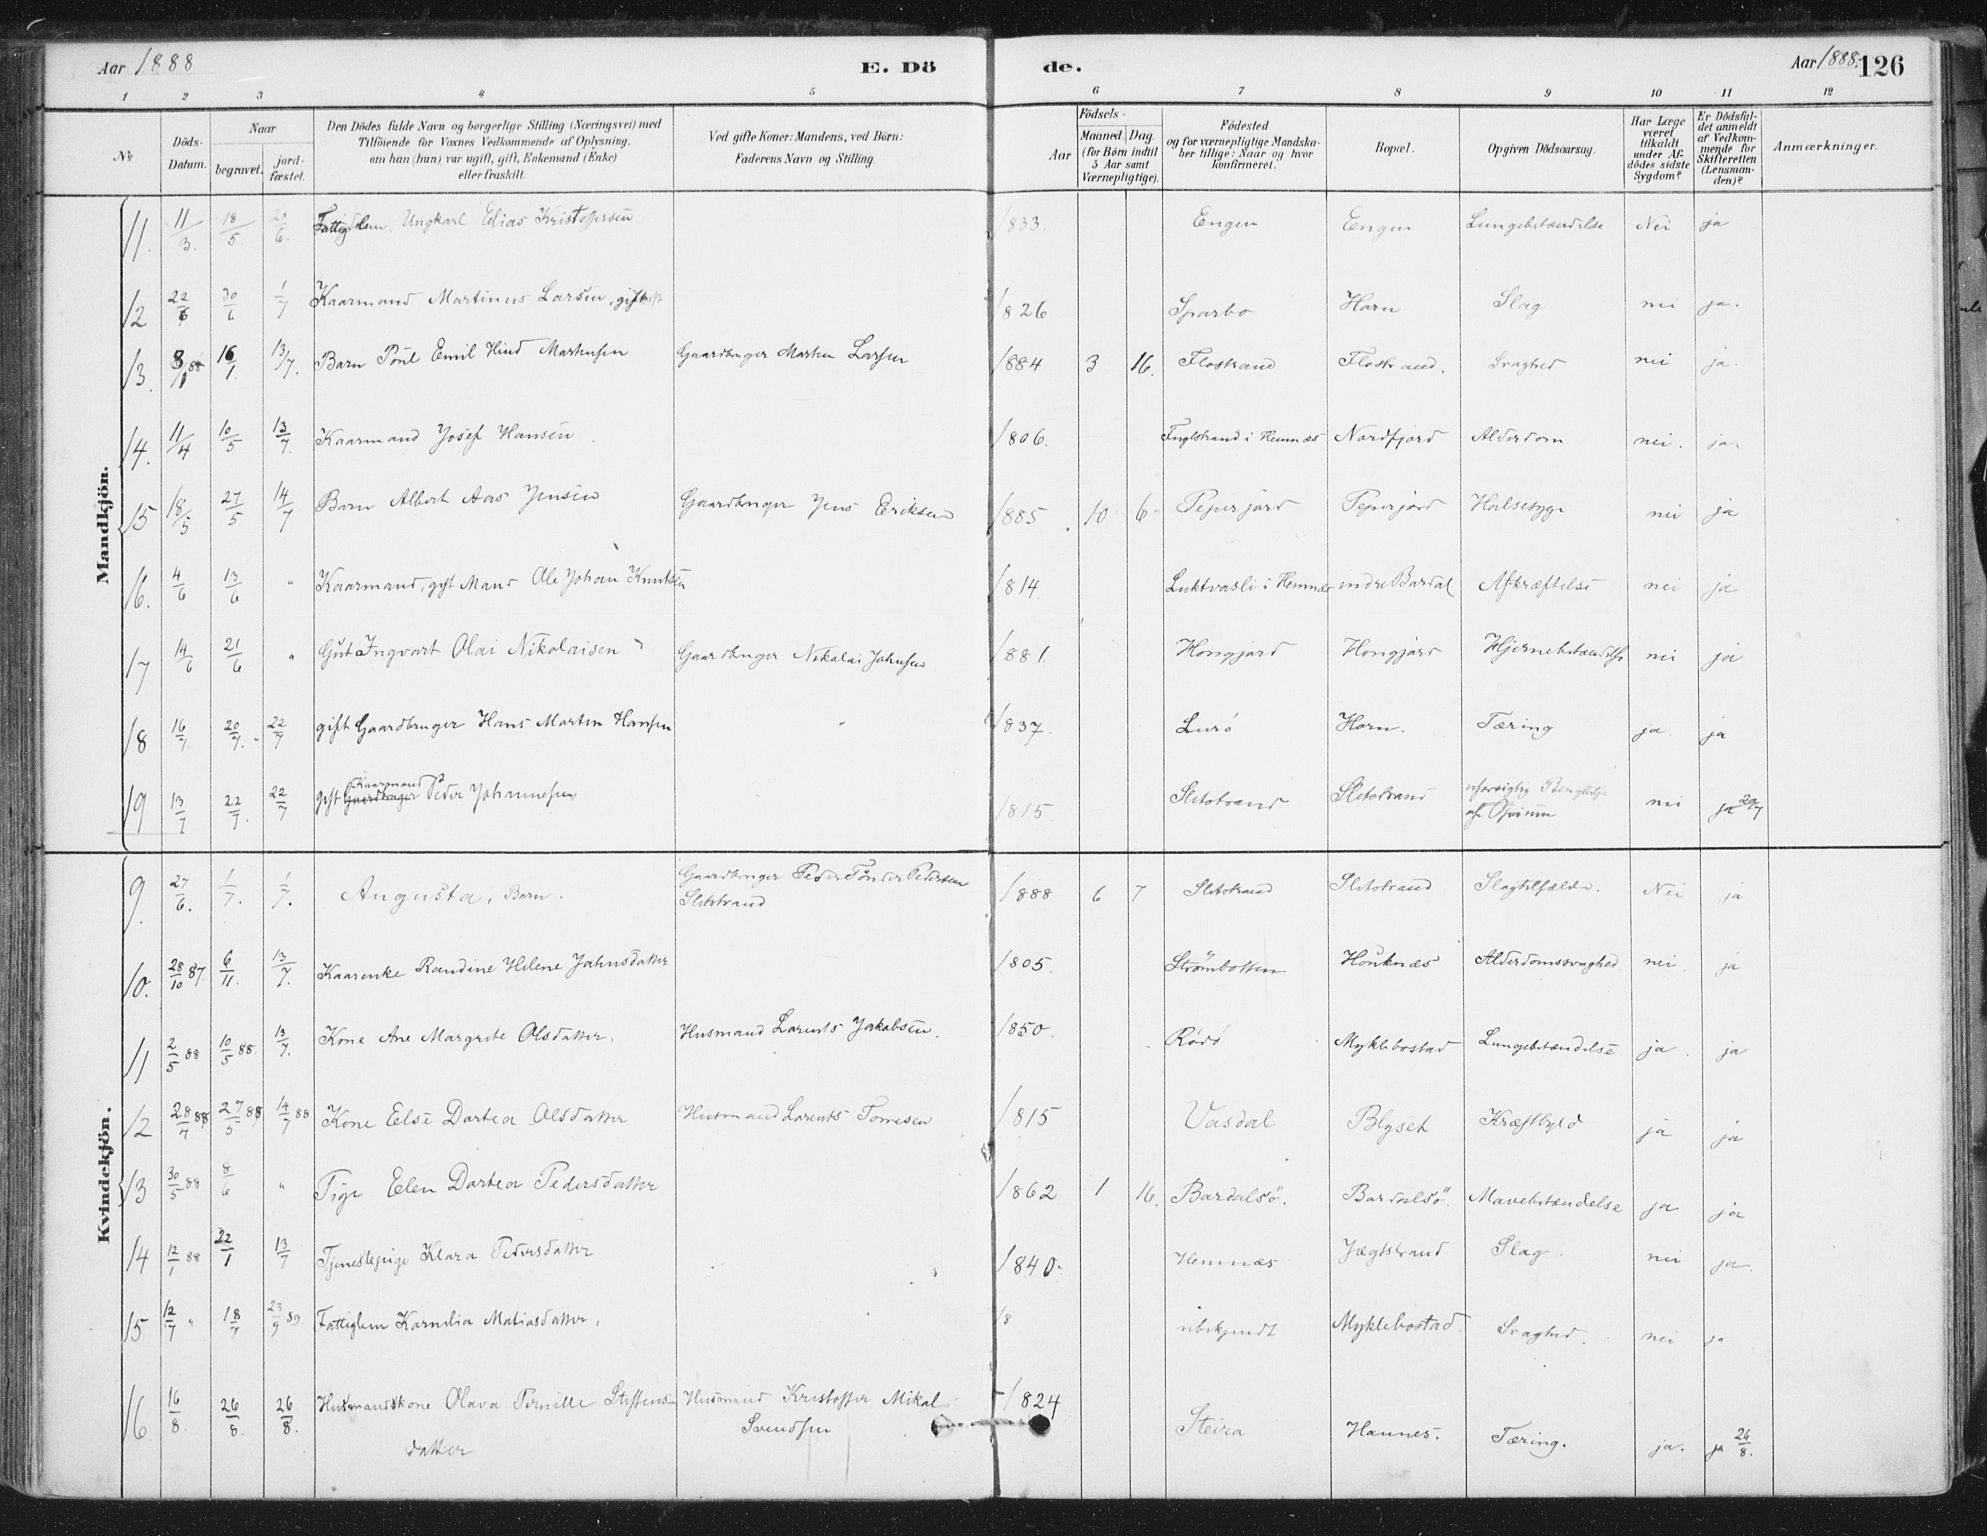 Aar 1888 E. Döde. Aar 1888. 126
1 2 3 4 5 6 7 8 9 10 11 12
No Döds-Datum. Naar begravet. jordfæstet. Den Dödes fulde Navn og borgerlige Stilling (Næringsvei) med Tilföiende for Voxnes Vedkommende af Oplysning, om han (hun) var ugift, gift, Enkemand (Enke) eller fraskilt. Ved gifte Koner: Mandens, ved Börn: Faderens Navn og Stilling. Födsels- Aar Maaned. Dag. (for Börn indtil 5 Aar samt Værnepligtige). Födested og for værnepligtige Mandskaber tillige: Naar og hvor konfirmeret. Bopæl. Opgiven Dödsaarsag. Har Læge været tilkaldt under Afdödes sidste Sygdom? Er Dödsfaldet anmeldt af Vedkommende for Skifteretten (Lensmanden)? Anmærkninger.
Mandkjön.
11. 11/3. 18/5. 20/6. Fattiglem, Ungkarl Elias Kristoffersen 1833. Engen Engen Lungebetændelse Nei ja
12 22/6 30/6 1/7 Kaarmand Martinus Larsen, gift 1826 Sparbo Horn Slag nei ja.
13. 8/1 88 16/1. 13/7. Barn Poul Emil Hind Martensen Gaardbruger Marten Larsen 1884 3 16. Flostrand Flostrand. Svaghed nei ja.
14. 11/4 10/5 13/7. Kaarmand Josef Hansen 1806. i Hemnæs Nordfjord Alderdom nei. ja.
15 18/5 27/5 14/7 Barn Albert Aas Jensen Gaardbruger Jens Eriksen 1885 10 6 Peperjord Peperjord Halsesyge nei ja
16. 4/6 13/6 " Kaarmand, gift Mand Ole Johan Knutsen 1814. Luktvasli i Hemnæs indre Bardal Afkræftelse nei ja
17 14/6 21/6 " Gut Ingvart Olai Nikolaisen Gaardbruger Nikolai Johnsen 1881. Hongjord Hongjord Hjernebetændelse nei ja
18 16/7. 20/7. 22/7 gift Gaardbruger Hans Morten Hansen " 1837. Lurö Horn. Tæring ja. ja
19 13/7 22/7. 22/7 gift Gaardbruger Kaarmand Peder Johannesen 1815. Sletstrand Sletstrand af Opium nei ja 20/7
Kvindekjön.
9. 27/6. 1/7. 1/7. Augusta, Barn. Gaardbruger Peder Tönder Pedersen Sletstrand 1888 6 7 Sletstrand Sletstrand Slagtilfælde. Nei ja
10. 28/10 87. 6/11. 13/7. Kaarenke Randine Helene Jahnsdatter 1805. Strömbotten Houknæs Alderdomssvaghed. nei. ja
11 2/5 88 10/5 88. 13/7. Kone Ane Margrete Olsdatter. Husmand Lorents Jakobsen. 1850. Rödö Myklebostad Lungebetændelse ja. ja
12 28/4 88 27/5 88 14/7 88 Kone Else Dortea Olsdatter Husmand Lorents Tomesen 1815 Vasdal Blyset Kræftbyld ja ja
13 30/5 88 8/6 " Pige Elen Dortea Pedersdatter 1862 1 16. Bardalsö. Bardalsö. Mavebetændelse ja ja
14 12/1 88 22/1 13/7 Tjenestepige Klara Pedersdatter 1840. Hemnæs Jægtstrand Slag. nei ja.
15 12/7 " 18/7 23/9 89 Fattiglem Karnelia Matiasdatter, 18 ubekjendt Myklebostad. Svaghed. nei ja
16. 16/8. 26/8. 26/8. Husmandskone Olava Pernille Steffens- Husmand Kristoffer Mikal 1824 Steira Hannes. Tæring. ja. ja 26/8.
datter Svendsen